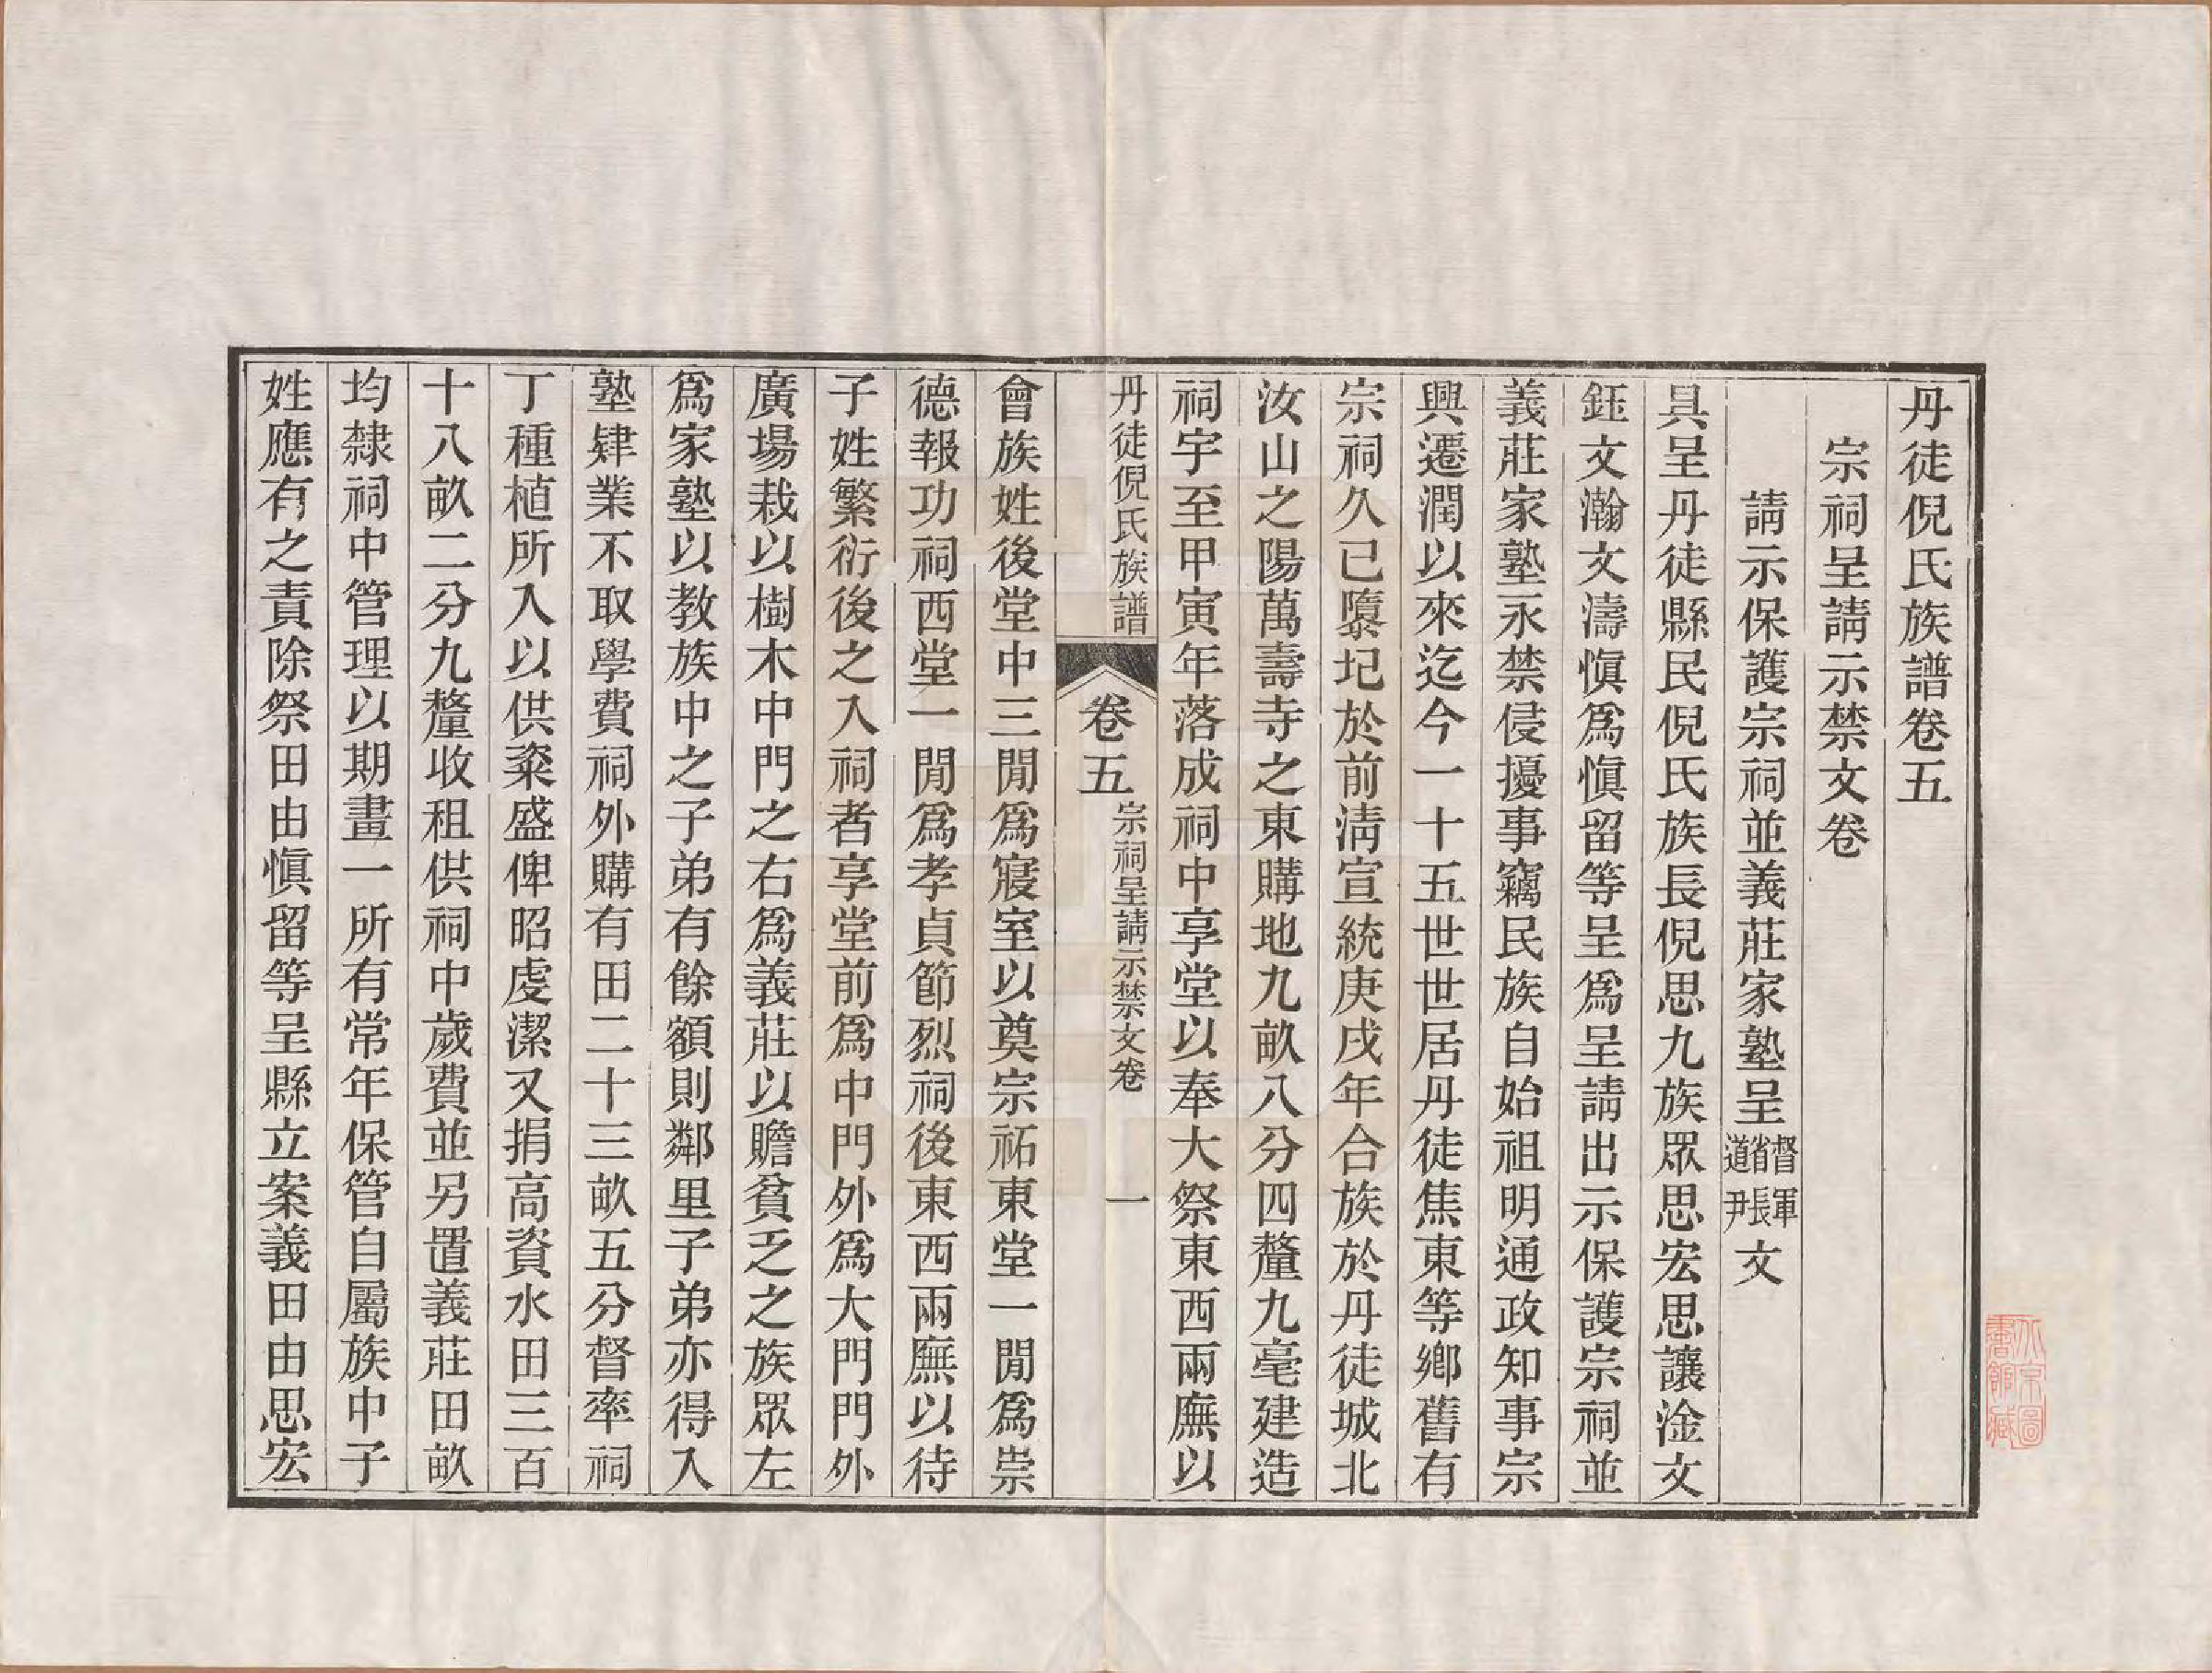 丹徒倪氏族譜卷五
宗祠呈請示禁文卷
請示保護宗祠並義莊家塾呈督軍省長道尹文
具呈丹徒縣民倪氏族長倪思九族眾思宏思讓淦文
鈺文瀚文濤愼爲愼留等呈爲呈請出示保護宗祠並
義莊家塾永禁侵擾事竊民族自始祖明通政知事宗
興遷潤以來迄今一十五世世居丹徒焦東等鄕舊有
宗祠久已隳圮於前淸宣統庚戌年合族於丹徒城北
汝山之陽萬壽寺之東購地九畝八分四釐九毫建造
祠宇至甲寅年落成祠中享堂以奉大祭東西兩廡以
丹徒倪氏族譜
卷五
宗祠呈請示禁文卷
一
會族姓後堂中三閒爲寢室以奠宗祏東堂一閒爲崇
德報功祠西堂一閒爲孝貞節烈祠後東西兩廡以待
子姓繁衍後之入祠者享堂前爲中門外爲大門門外
廣場栽以樹木中門之右爲義莊以贍貧乏之族眾左
爲家塾以教族中之子弟有餘額則鄰里子弟亦得入
塾肄業不取學費祠外購有田二十三畝五分督率祠
丁種植所入以供粢盛俾昭虔潔又捐高資水田三百
十八畝二分九釐收租供祠中歲費並另置義莊田畝
均隸祠中管理以期畫一所有常年保管自屬族中子
姓應有之責除祭田由愼留等呈縣立案義田由思宏
北京圖書館藏